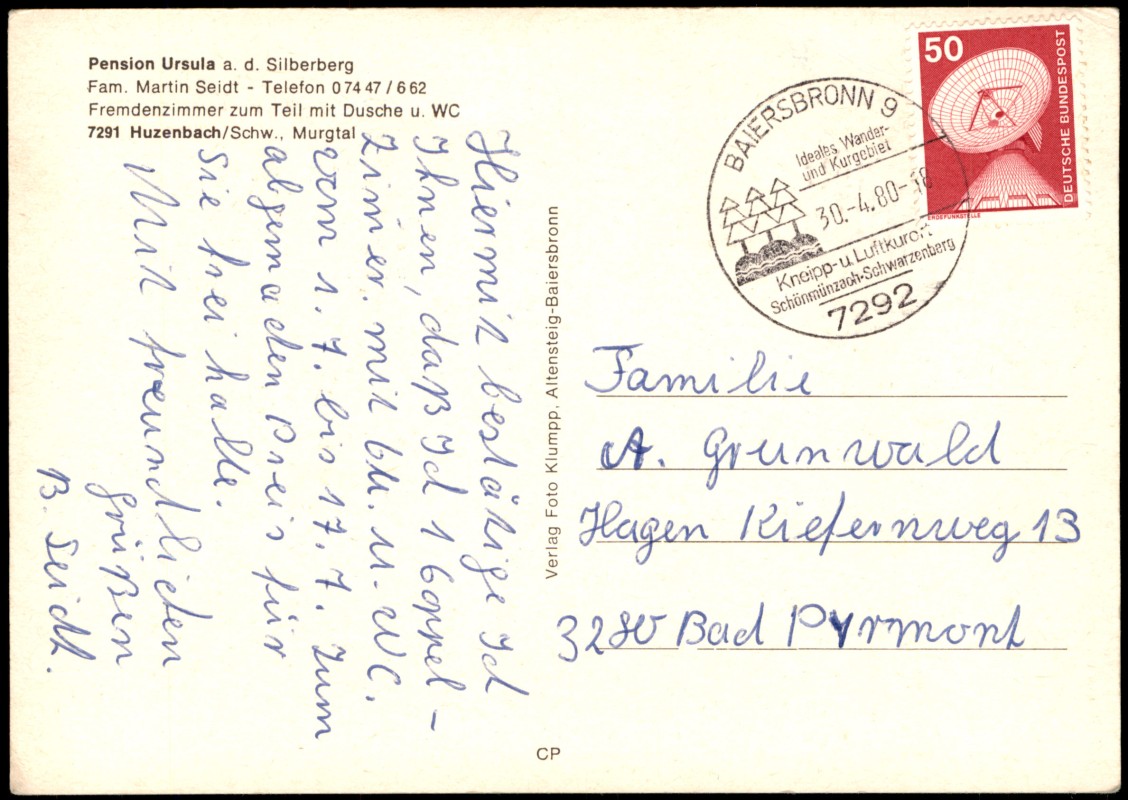 Pension Ursula a. d. Silberberg
Fam. Martin Seidt - Telefon 07447/662
Fremdenzimmer zum Teil mit Dusche u. WC
7291 Huzenbach/Schw., Murgtal
Hiermit bestätige Ich
Ihnen, daß Ich 1 Goppel-
Zimer. mit bu. u. WC.
vom 1.7. bis 17.7. zum
abgemachten Preis für
Sie frei halte.
Mit freundlichen
Grüßen
B. Seidt.
Verlag Foto Klumpp, Altensteig-Baiersbronn
CP
50
DEUTSCHE BUNDESPOST
ERDEFUNKSTELLE
BAIERSBRONN 9
Ideales Wander-
und Kurgebiet
30.-4.80-18
Kneipp-u. Luftkurort
Schönmünzach-Schwarzenberg
7292
Familie
A. Grunwald
Hagen Kiefernweg 13
3280 Bad Pyrmont